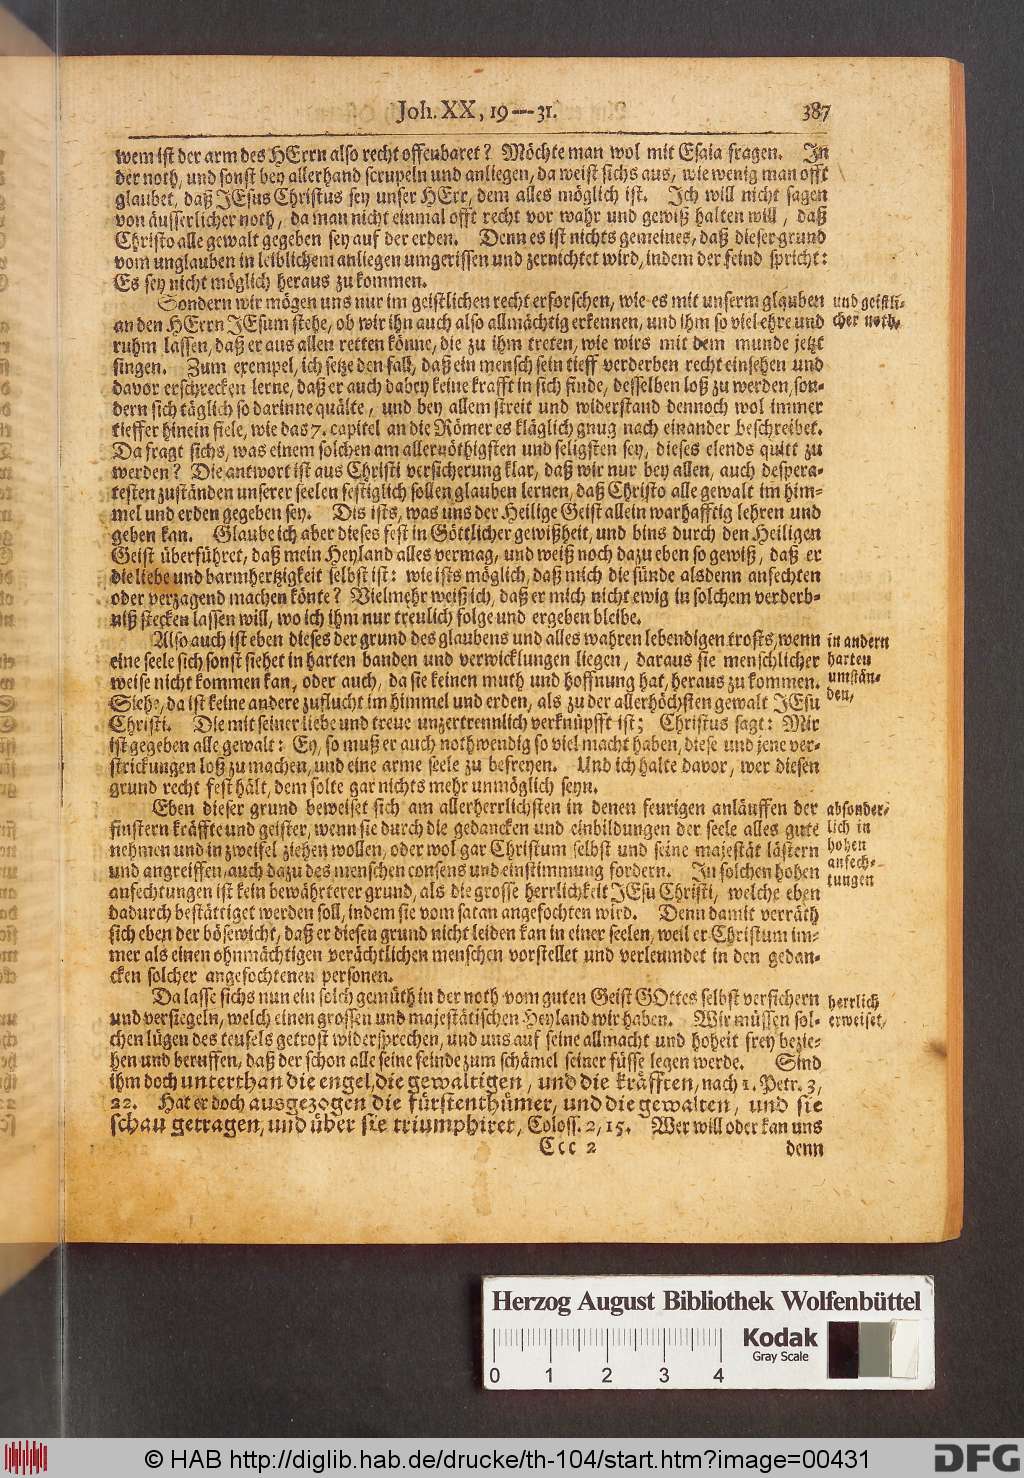 Joh. XX, 19—31. 387
wem ist der arm des HErrn also recht offenbaret? Möchte man wol mit Esaia fragen. In
der noth, und sonst bey allerhand scrupeln und anliegen, da weist sichs aus, wie wenig man offt
glaubet, daß JEsus Christus sey unser HErr, dem alles möglich ist. Ich will nicht sagen
von äusserlicher noth, da man nicht einmal offt recht vor wahr und gewiß halten will, daß
Christo alle gewalt gegeben sey auf der erden. Denn es ist nichts gemeines, daß dieser grund
vom unglauben in leiblichem anliegen umgerissen und zernichtet wird, indem der feind spricht:
Es sey nicht möglich heraus zu kommen.
Sondern wir mögen uns nur im geistlichen recht erforschen, wie es mit unserm glauben
und geistli-
an den HErrn JEsum stehe, ob wir ihn auch also allmächtig erkennen, und ihm so viel ehre und
cher noth,
ruhm lassen, daß er aus allen retten könne, die zu ihm treten, wie wirs mit dem munde jetzt
singen. Zum exempel, ich setze den fall, daß ein mensch sein tieff verderben recht einsehen und
davor erschrecken lerne, daß er auch dabey keine krafft in sich finde, desselben loß zu werden, son-
dern sich täglich so darinne quälte, und bey allem streit und widerstand dennoch wol immer
tieffer hinein fiele, wie das 7. capitel an die Römer es kläglich gnug nach einander beschreibet.
Da fragt sichs, was einem solchen am allernöthigsten und seligsten sey, dieses elends quitt zu
werden? Die antwort ist aus Christi versicherung klar, daß wir nur bey allen, auch despera-
testen zuständen unserer seelen festiglich sollen glauben lernen, daß Christo alle gewalt im him-
mel und erden gegeben sey. Dis ists, was uns der Heilige Geist allein warhafftig lehren und
geben kan. Glaube ich aber dieses fest in Göttlicher gewißheit, und bins durch den Heiligen
Geist überführet, daß mein Heyland alles vermag, und weiß noch dazu eben so gewiß, daß er
die liebe und barmhertzigkeit selbst ist: wie ists möglich, daß mich die sünde alsdenn anfechten
oder verzagend machen könte? Vielmehr weiß ich, daß er mich nicht ewig in solchem verderb-
niß stecken lassen will, wo ich ihm nur treulich folge und ergeben bleibe.
Also auch ist eben dieses der grund des glaubens und alles wahren lebendigen trosts, wenn
in andern
eine seele sich sonst siehet in harten banden und verwicklungen liegen, daraus sie menschlicher
harten
weise nicht kommen kan, oder auch, da sie keinen muth und hoffnung hat, heraus zu kommen.
umstän-
Siehe, da ist keine andere zuflucht im himmel und erden, als zu der allerhöchsten gewalt JEsu
den,
Christi. Die mit seiner liebe und treue unzertrennlich verknüpfft ist; Christus sagt: Mir
ist gegeben alle gewalt: Ey, so muß er auch nothwendig so viel macht haben, diese und jene ver-
strickungen loß zu machen, und eine arme seele zu befreyen. Und ich halte davor, wer diesen
grund recht fest hält, dem solte gar nichts mehr unmöglich seyn.
Eben dieser grund beweiset sich am allerherrlichsten in denen feurigen anläuffen der
absonder-
finstern kräffte und geister, wenn sie durch die gedancken und einbildungen der seele alles gute
lich in
nehmen und in zweifel ziehen wollen, oder wol gar Christum selbst und seine majestät lästern
hohen
und angreiffen, auch dazu des menschen consens und einstimmung fordern. In solchen hohen
anfech-
anfechtungen ist kein bewährterer grund, als die grosse herrlichkeit JEsu Christi, welche eben
tungen
dadurch bestättiget werden soll, indem sie vom satan angefochten wird. Denn damit verräth
sich eben der bösewicht, daß er diesen grund nicht leiden kan in einer seelen, weil er Christum im-
mer als einen ohnmächtigen verächtlichen menschen vorstellet und verleumdet in den gedan-
cken solcher angefochtenen personen.
Da lasse sichs nun ein solch gemüth in der noth vom guten Geist GOttes selbst versichern
herrlich
und versiegeln, welch einen grossen und majestätischen Heyland wir haben. Wir müssen sol-
erweiset,
chen lügen des teufels getrost widersprechen, und uns auf seine allmacht und hoheit frey bezie-
hen und beruffen, daß der schon alle seine feinde zum schämel seiner füsse legen werde. Sind
ihm doch unterthan die engel, die gewaltigen, und die kräfften, nach 1. Petr. 3,
22. Hat er doch ausgezogen die fürstenthümer, und die gewalten, und sie
schau getragen, und über sie triumphiret, Coloss. 2, 15. Wer will oder kan uns
Ccc 2 denn
Herzog August Bibliothek Wolfenbüttel
Kodak
Gray Scale
0 1 2 3 4
© HAB http://diglib.hab.de/drucke/th-104/start.htm?image=00431
DFG